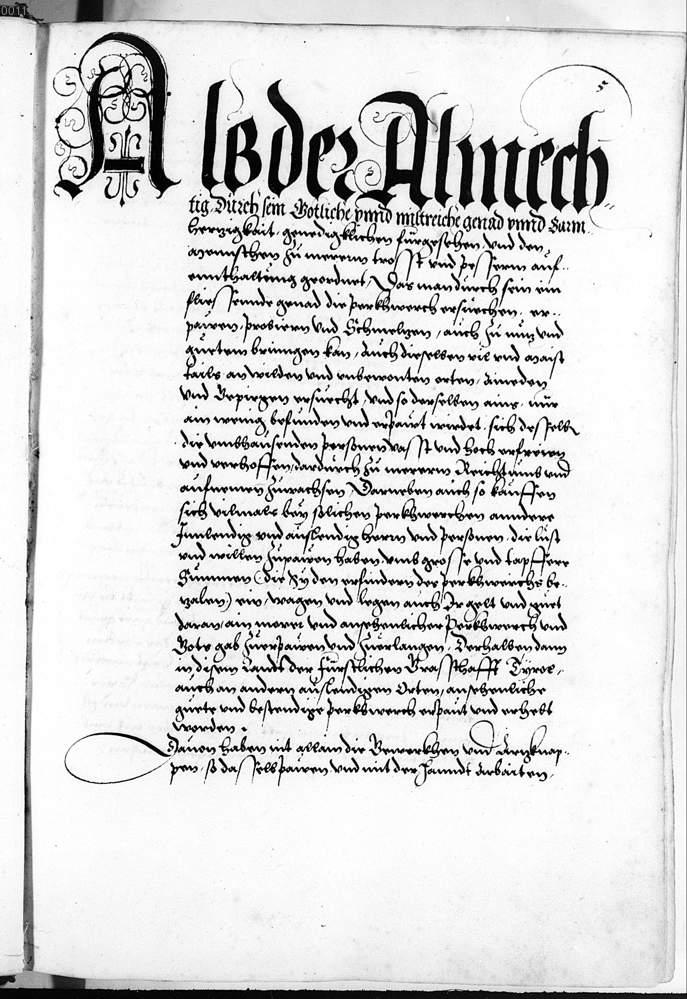 0011
Alß der Almech
tig, Durch sein Gotliche vnnd miltreiche genad vnnd Barm-
hertzigkait, genedigklichen fürgesehen, vnd den
Mennschen zu mererm trosst vnd pesserm auf-
ennthaltung geordnet, Das man durch sein ein
fliessennde genad die perkhwerch ersuechen, er-
pawen, probiern vnd Schmeltzen, auch zu nutz vnd
guetem bringen kan, Auch dieselben vil vnd maist
tails an wilden vnd vnbewonten orten, Ainöden
vnd Gepirgen ersuecht, vnd so derselben ains, nur
ain wenig befunden vnd erpawt wirdet, sich desselben
die vmbhausenden personen vasst vnd hoch erfreien
vnd verhoffen, dardurch zu mererm Reichtumb vnd
aufnemen zuwachsen, Darneben auch so kauffen
sich vilmals bey solichen perkhwerchen anndere
Innlendig vnd auslendig herrn vnd personen, die lust
vnd willen zupawen haben, vmb grosse vnd tapffere
Summen (die Sy den erfindern der perkhwerchs be-
zalen) ein, wagen vnd legen auch Ir gelt vnd guet
daran, ain merer vnd ansehenlicher Perkhwerch vnd
Gots gab zuerpawen vnd zuerlangen, Derhalben dann
in disem Lanndt der Fürstlichen Grafschafft Tyrol,
auch an andern auslendigen Orten, ansehenliche
guete vnd bestendige perkhwerch erpaut vnd erhebt
worden.
Dauon haben nit allain die Gewerkhen vnd Ärtzknap-
pen, so dasselb pawen vnd mit der Hanndt Arbaiten,